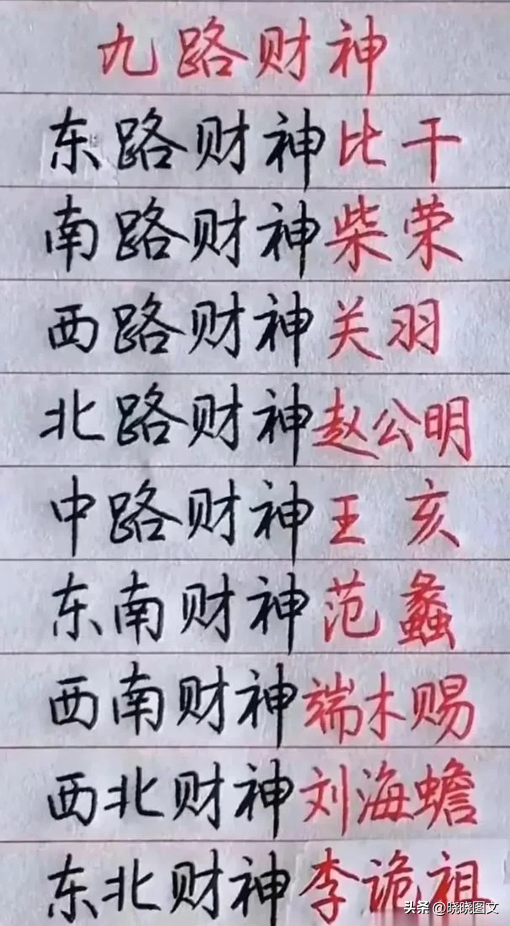 九路财神
东路财神比干
南路财神柴荣
西路财神关羽
北路财神赵公明
中路财神王亥
东南财神范蠡
西南财神端木赐
西北财神刘海蟾
东北财神李诡祖
头条 @晓晓图文